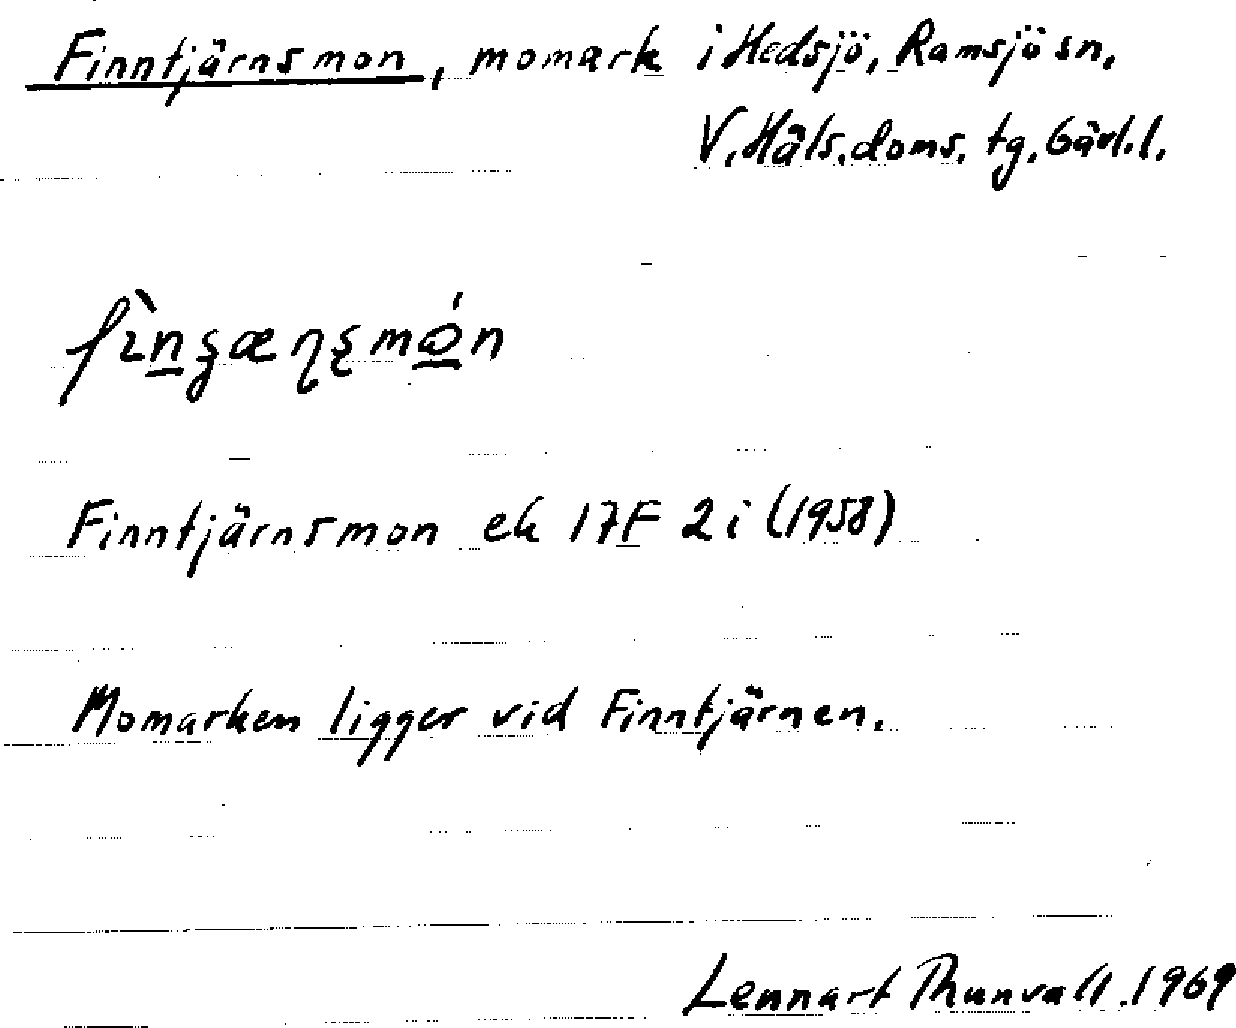 Finntjärnsmon, momark i Hedsjö, Ramsjö sn,
V. Häls. doms. tg. Gävl. l.
Finntjärnsmon ek 17F 2i (1958)
Momarken ligger vid Finntjärnen.
Lennart Thunvall. 1969